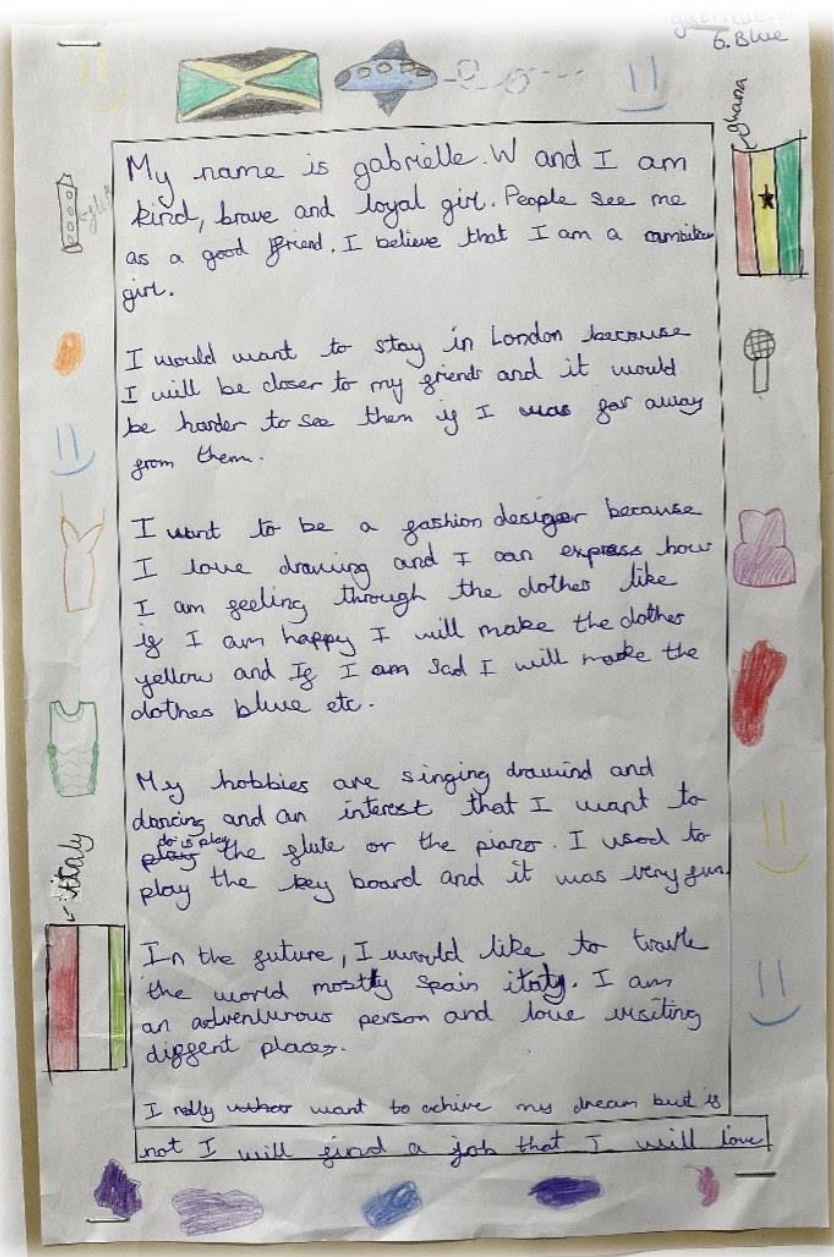 6.Blue
ghana
My name is gabrielle.W and I am
kind, brave and loyal girl. People see me
as a good friend. I believe that I am a
girl.
I would want to stay in London because
I will be closer to my friends and it would
be harder to see them if I was far away
from them.
I want to be a fashion desiger because
I love drawing and I can express how
I am feeling through the clothes like
if I am happy I will make the clothes
yellow and If I am sad I will make the
clothes blue etc.
My hobbies are singing drawind and
dancing and an interest that I want to
do is play
play the flute or the piano. I used to
play the key board and it was very fun.
italy
In the future, I would like to travle
the world mostly Spain itaty. I am
an adventurous person and love visiting
diffent places.
I relly want to achive my dream but is
not I will find a job that I will love